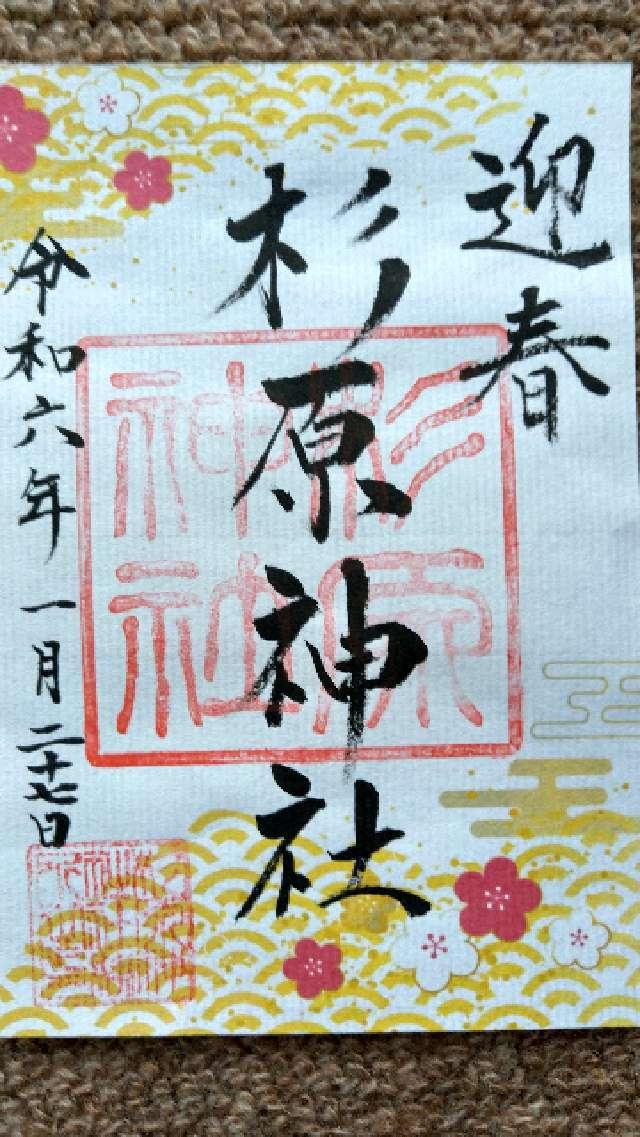 迎春
杉原神社
杉原
神社
令和六年一月二十七日